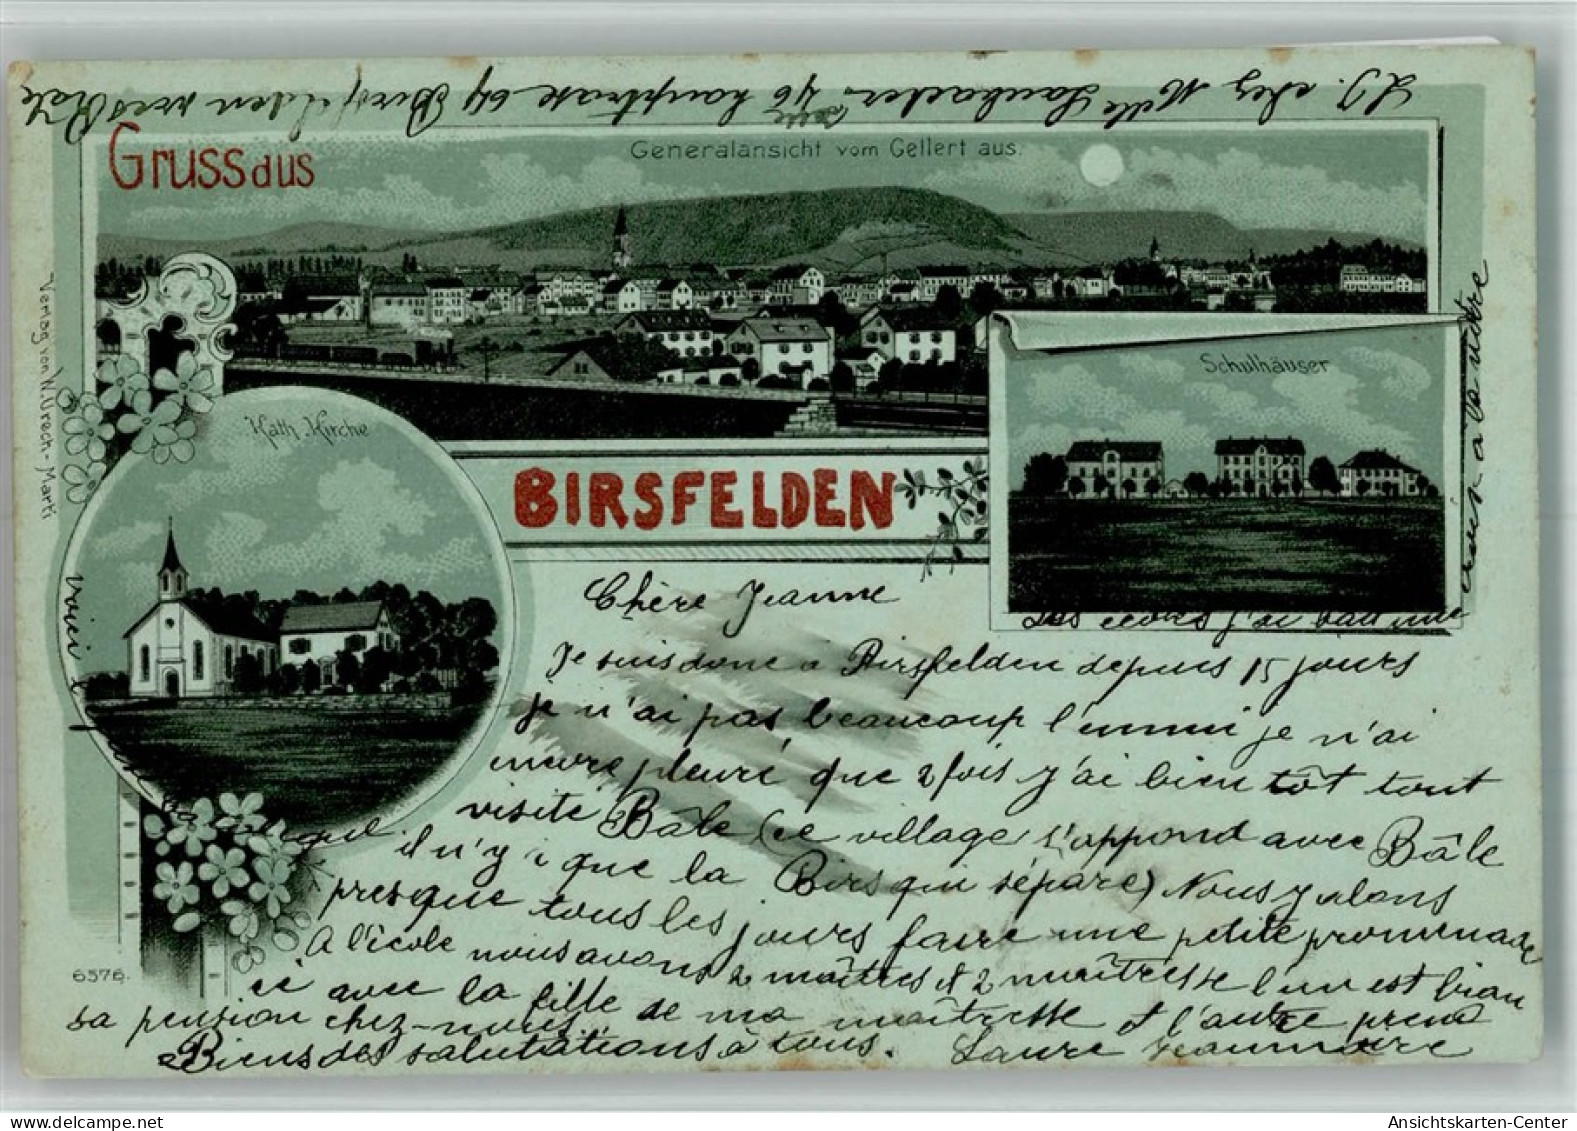 L.J. chez Melle Laubacher 46 hauptrase 64 Birsfelden
Gruss aus
Generalansicht vom Gellert aus.
Verlag von W. Urech-Marti
Kath. Kirche
Schulhäuser
BIRSFELDEN
Chère Jeanne
Je suis donc a Birsfelden depuis 15 jours
je n'ai pas beaucoup l'ennui je n'ai
encore pleuré que 2 fois j'ai bien tôt tout
visité Bâle (ce village s'appond avec Bâle
il n'y i que la Birs qui sépare) Nous y alons
presque tous les jours faire une petite promenade
A l'école nous avons 2 maîtres et 2 maîtresse l'un est bien
ici avec la fille de ma maîtresse et l'autre prend
sa pension chez-nous.
Biens des salutations à tous. Laure Jeanmaire
6576.
voici
à la nôtre